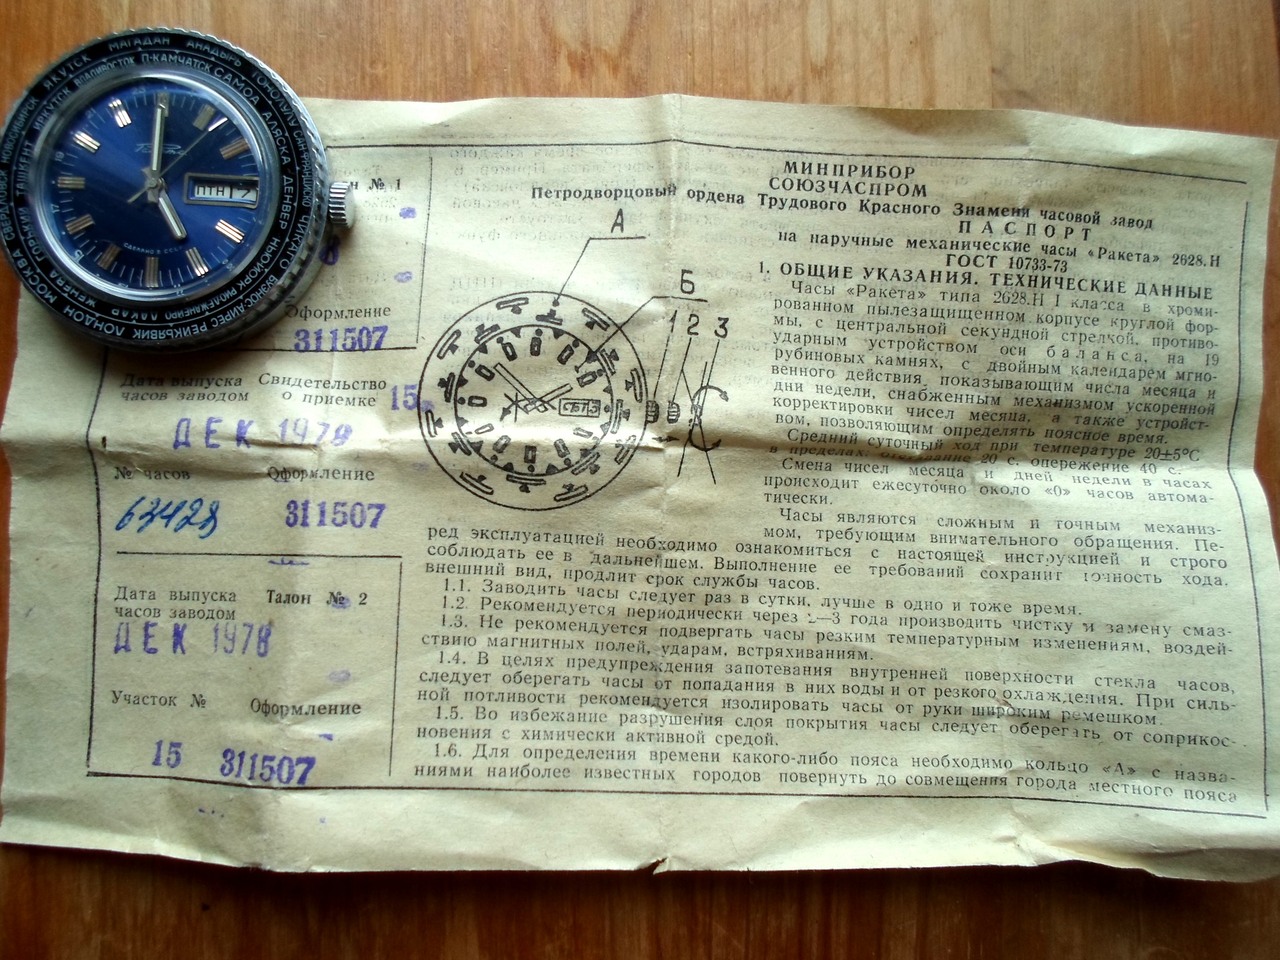 МАГАДАН АНАДЫРЬ ГОНОЛУЛУ САН-ФРАНЦИСКО ЧИКАГО БУЭНОС-АЙРЕС РЕЙКЯВИК ЛОНДОН ЖЕНЕВА МОСКВА СВЕРДЛОВСК НОВОСИБИРСК ЯКУТСК
ВЛАДИВОСТОК П-КАМЧАТСК САМОА АЛЯСКА ДЕНВЕР НЬЮ-ЙОРК РИО-ДЕ-ЖАНЕЙРО ДАКАР ГОРЬКИЙ ТАШКЕНТ ИРКУТСК
ПТН 17
СДЕЛАНО В СССР
№ 1
Оформление
311507
Дата выпуска Свидетельство
часов заводом о приемке 15
ДЕК 1978
№ часов Оформление
63428 311507
Дата выпуска Талон № 2
часов заводом
ДЕК 1978
Участок № Оформление
15 311507
МИНПРИБОР
СОЮЗЧАСПРОМ
Петродворцовый ордена Трудового Красного Знамени часовой завод
ПАСПОРТ
на наручные механические часы «Ракета» 2628.Н
ГОСТ 10733-73
А
Б
1 2 3
1. ОБЩИЕ УКАЗАНИЯ. ТЕХНИЧЕСКИЕ ДАННЫЕ
Часы «Ракета» типа 2628.Н I класса в хроми-
рованном пылезащищенном корпусе круглой фор-
мы, с центральной секундной стрелкой, противо-
ударным устройством оси баланса, на 19
рубиновых камнях, с двойным календарем мгно-
венного действия, показывающим числа месяца и
дни недели, снабженным механизмом ускоренной
корректировки чисел месяца, а также устройст-
вом, позволяющим определять поясное время.
Средний суточный ход при температуре 20±5°С
в пределах: отставание 20 с. опережение 40 с.
Смена чисел месяца и дней недели в часах
происходит ежесуточно около «0» часов автома-
тически.
Часы являются сложным и точным механиз-
мом, требующим внимательного обращения. Пе-
ред эксплуатацией необходимо ознакомиться с настоящей инструкцией и строго
соблюдать ее в дальнейшем. Выполнение ее требований сохранит точность хода,
внешний вид, продлит срок службы часов.
1.1. Заводить часы следует раз в сутки, лучше в одно и тоже время.
1.2. Рекомендуется периодически через 2—3 года производить чистку и замену смаз-
1.3. Не рекомендуется подвергать часы резким температурным изменениям, воздей-
ствию магнитных полей, ударам, встряхиваниям.
1.4. В целях предупреждения запотевания внутренней поверхности стекла часов,
следует оберегать часы от попадания в них воды и от резкого охлаждения. При силь-
ной потливости рекомендуется изолировать часы от руки широким ремешком.
1.5. Во избежание разрушения слоя покрытия часы следует оберегать от соприкос-
новения с химически активной средой.
1.6. Для определения времени какого-либо пояса необходимо кольцо «А» с назва-
ниями наиболее известных городов повернуть до совмещения города местного пояса